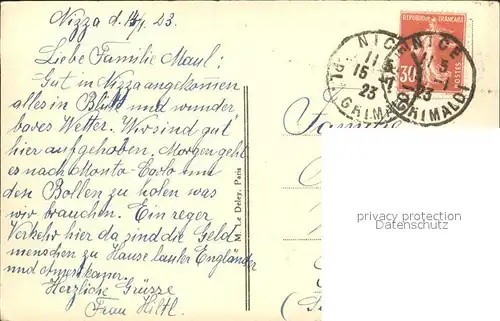 Nizza d. 15/1. 23.
Liebe Familie Maul:
Gut in Nizza angekom̅en
alles in Blust und wunder
bares Wetter. Wir sind gut
hier aufgehoben, Morgen geht
es nach Monto-Carlo um
den Bollen zu holen was
wir brauchen. Ein reger
Verkehr hier da sind die Geld
menschen zu Hause lauter Engländer
und Amerikaner.
Herzliche Grüsse
Frau Hiltl
M. Le Deley, Paris
RÉPUBLIQUE FRANÇAISE
30
POSTES
NICE
NICE
11 5
15 - 1
23
PL. GRIMALDI
GRIMALDI
Famille
privacy protection
Datenschutz